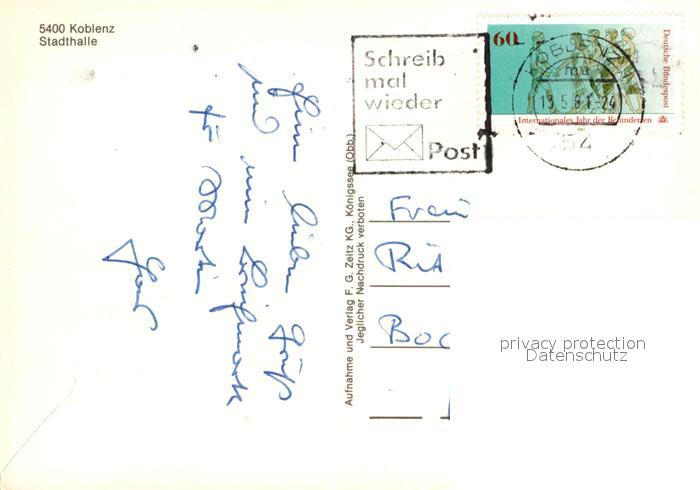 5400 Koblenz
Stadthalle
Schreib
mal
wieder
Post
60
Deutsche Bundespost
Internationales Jahr der Behinderten
1981
KOBLENZ
13.5.81-24
54
Aufnahme und Verlag F. G. Zeitz KG., Königssee (Obb.)
Jeglicher Nachdruck verboten
lieben Gruß
und
für Martin
Frau
Rit
Boc
privacy protection
Datenschutz